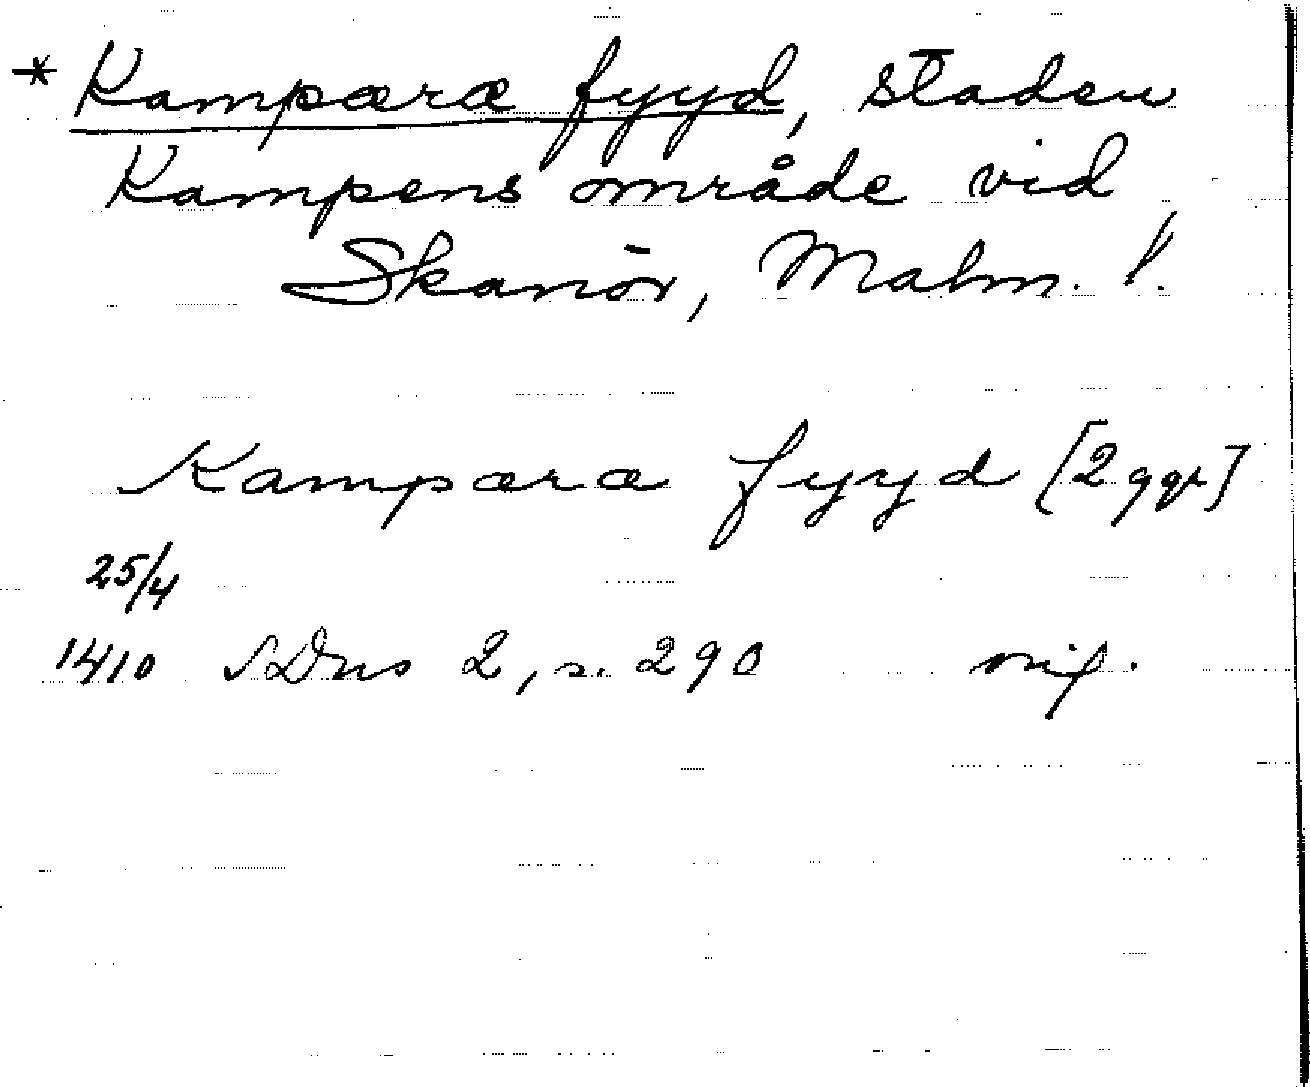 * Kampæræ fyyd, staden
Kampens område vid
Skanör, Malm. l.
Kampæræ fyyd [2 ggr]
25/4
1410 SDns 2, s. 290 orig.